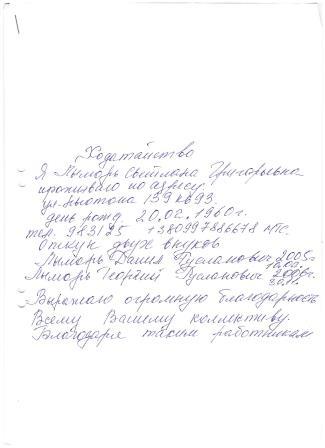 Ходатайство
Я Лымарь Светлана Григорьевна
проживаю по адресу.
ул. Ньютона 139 кв 93.
день рожд. 20.02.1960г.
тел. 983125 +380997886678 МТС.
Опекун двух внуков
Лымарь Данил Русланович 2005г
Лымарь Георгий Русланович 2008г.
20.11.
Выражаю огромную благодарность
Всему Вашему коллективу.
Благодаря таким работникам